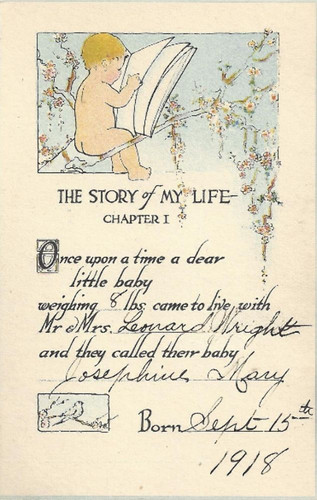 THE STORY of MY LIFE-
CHAPTER I
Once upon a time a dear
little baby
weighing 8 lbs. came to live with
Mr & Mrs. Leonard Wright
and they called their baby
Josephine Mary
Born Sept 15th
1918